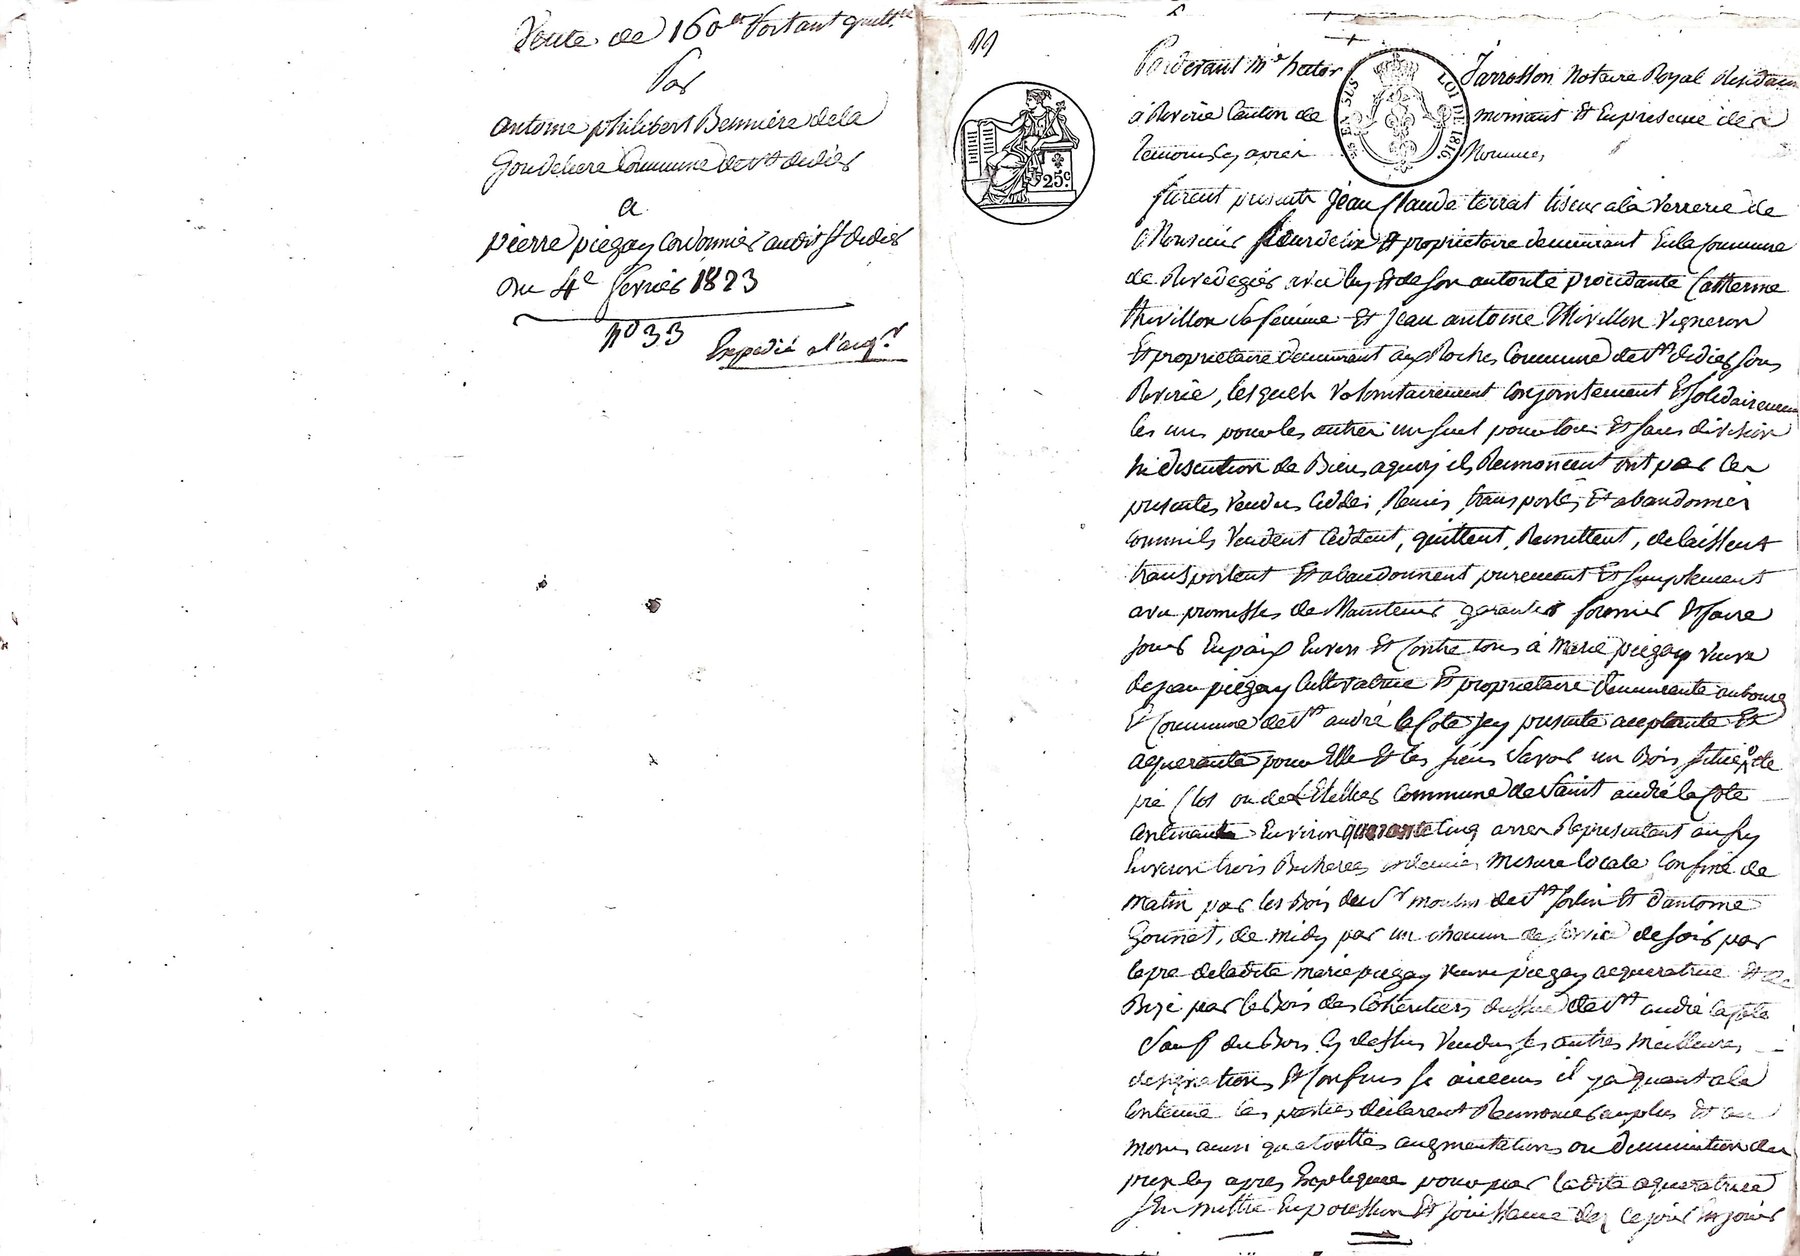 Vente de 160# Portant quitt.ce
Par
antoine philibert Bennière dela
Goudeliere Commune de St didier
a
pierre piégay Cordonnier audit St didier
du 4e fevrier 1823
no 33
Expedié a l'acqr.
99
Pardevant Me hector Jarrosson Notaire Royal Résidant
à Riverie Canton de mornant Et En presence des
temoins cy apres Nommés
EN SUS LOI DE 1816
25c.
furent presents Jean Claude terrat tiseur à la Verrerie de
Monsieur Et proprietaire demeurant En la Commune
de Rivedegier avec luy Et de Son autorité procédante Catherine
thivillon Sa femme Et Jean antoine Thivillon Vigneron
Et proprietaire demeurant aux Roches Commune de St didier Sous
Riverie, lesquels Volontairement Conjointement Et Solidairement
les uns pour les autres un Seul pour tous Et Sans division
ni discution de Biens aquoy ils Renoncent ont par Ces
presentes Vendus Cédés, Remis, transportés Et abandonnés
Comme ils Vendent Cédent, quittent, Remettent, delaissent
transportent Et abandonnent purement Et Simplement
avec promesses de Maintenir garantir fournir Et faire
jouir En paix Envers Et Contre tous à Marie piegay veuve
de Jean piégay Cultivatrice Et proprietaire demeurante au bourg
Et Commune de St andré la Cote icy presente acceptante Et
aquerante pour Elle Et les Siens Savoir un Bois Situé
pré Clos ou de Commune de Saint andré la Cote
Contenant Environ quarante Cinq arres Representant
Environ trois Bicherées Et demie, mesure locale Confiné de
matin par les Bois du Sr moulin de St Sorlin Et d'antoine
Gounet, de midy par un chemin de Service de Soir par
le pré de ladite marie piegay veuve piegay acqueratrice Et de
Bize par le Bois des Cohéritiers de St andré la Cote
Sauf du Bois Cy dessus Vendus Ses autres meilleures
designations Et Confins Si aucuns il y a quant a la
Contenue les parties déclarent Renoncer au plus Et au
moins ainsi qu'a touttes augmentations ou diminution du
prix Cy apres Expliqué pour par ladite aqueratrice
S'En mettre En possession Et jouissance dès Ce jour